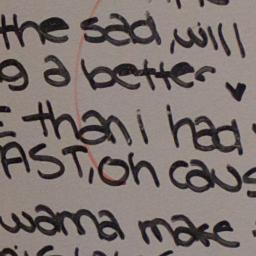 the sad, will
g a better
than i had
AST, oh caus
wanna make